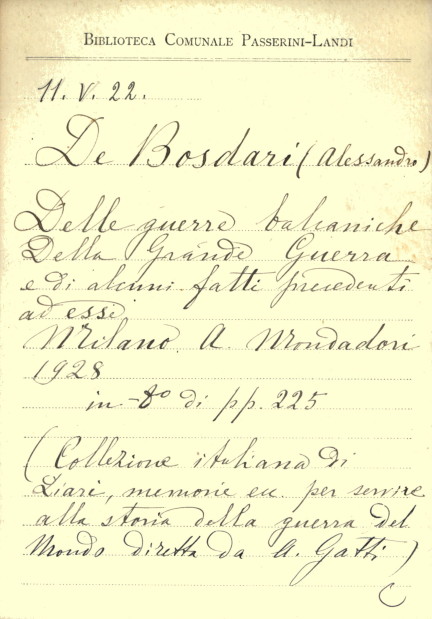 BIBLIOTECA COMUNALE PASSERINI-LANDI
11. V. 22.
De Bosdari (Alessandro)
Delle guerre balcaniche
Della Grande Guerra
e di alcuni fatti precedenti
ad essi
Milano. A. Mondadori
1928
in-8° di pp. 225
(Collezione italiana di
Diari, memorie ecc. per servire
alla storia della guerra del
Mondo diretta da A. Gatti)